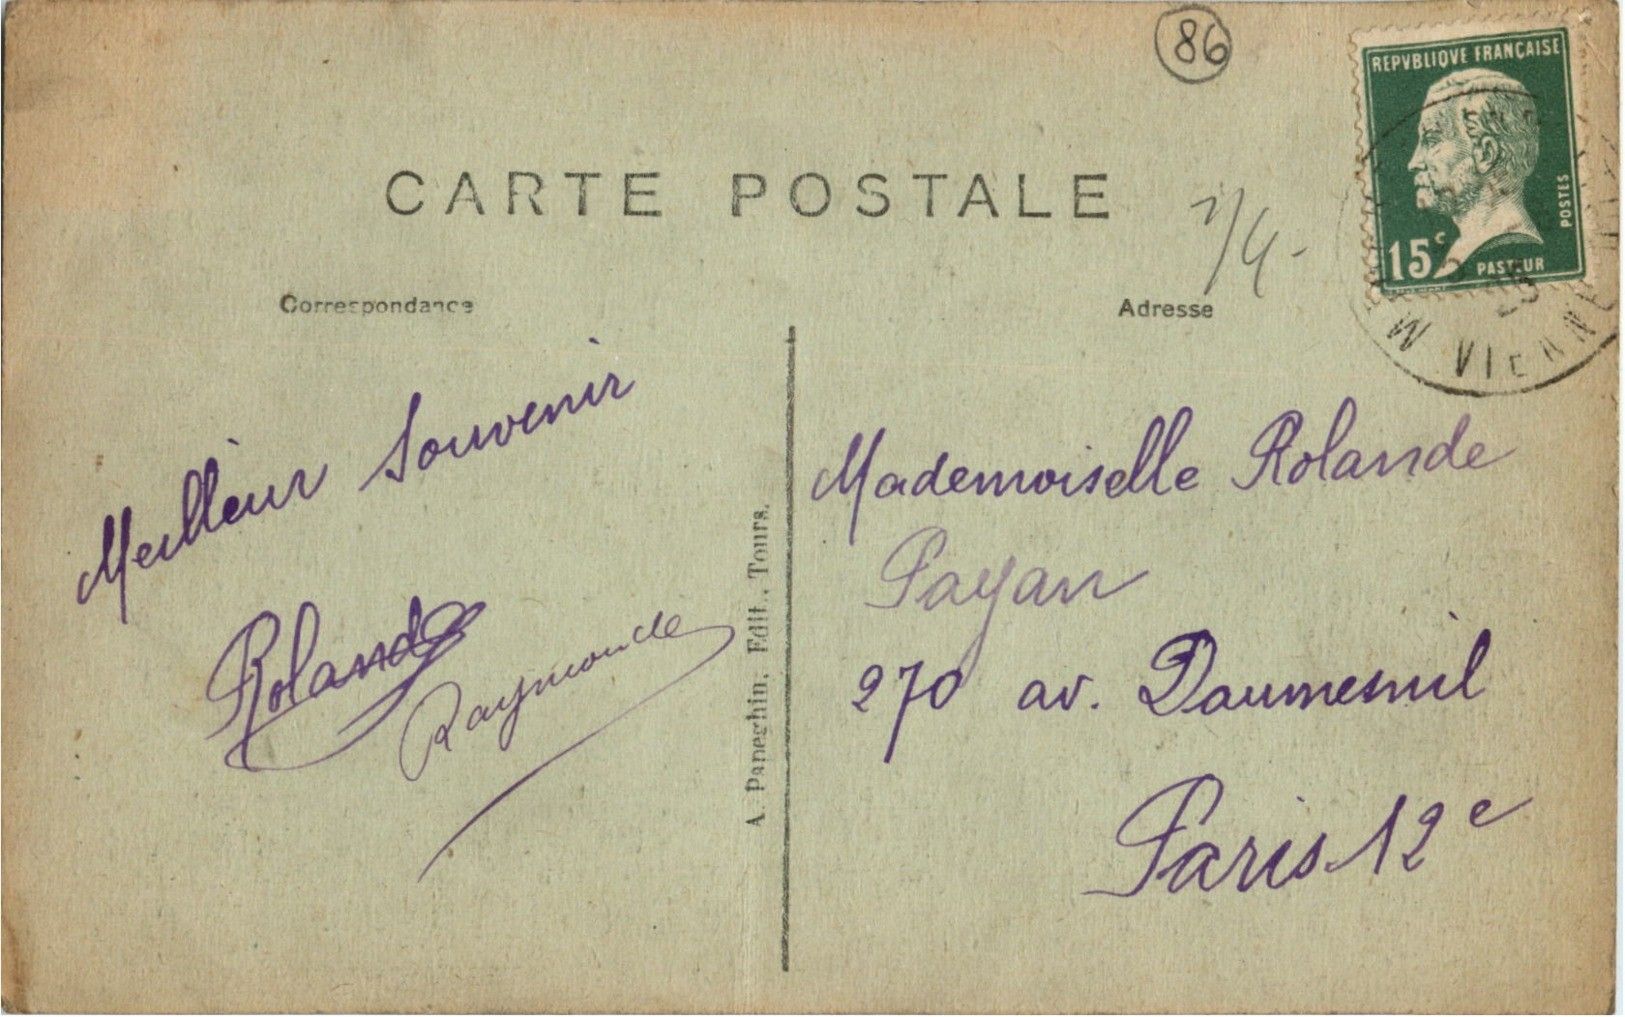 86
REPVBLIQVE FRANÇAISE
POSTES
15c
PASTEUR
VIENNE
CARTE POSTALE
Correspondance
Adresse
Meilleur Souvenir
Rolande
Raymonde
A. Papeghin, Edit., Tours.
Mademoiselle Rolande
Payan
270 av. Daumesnil
Paris 12e